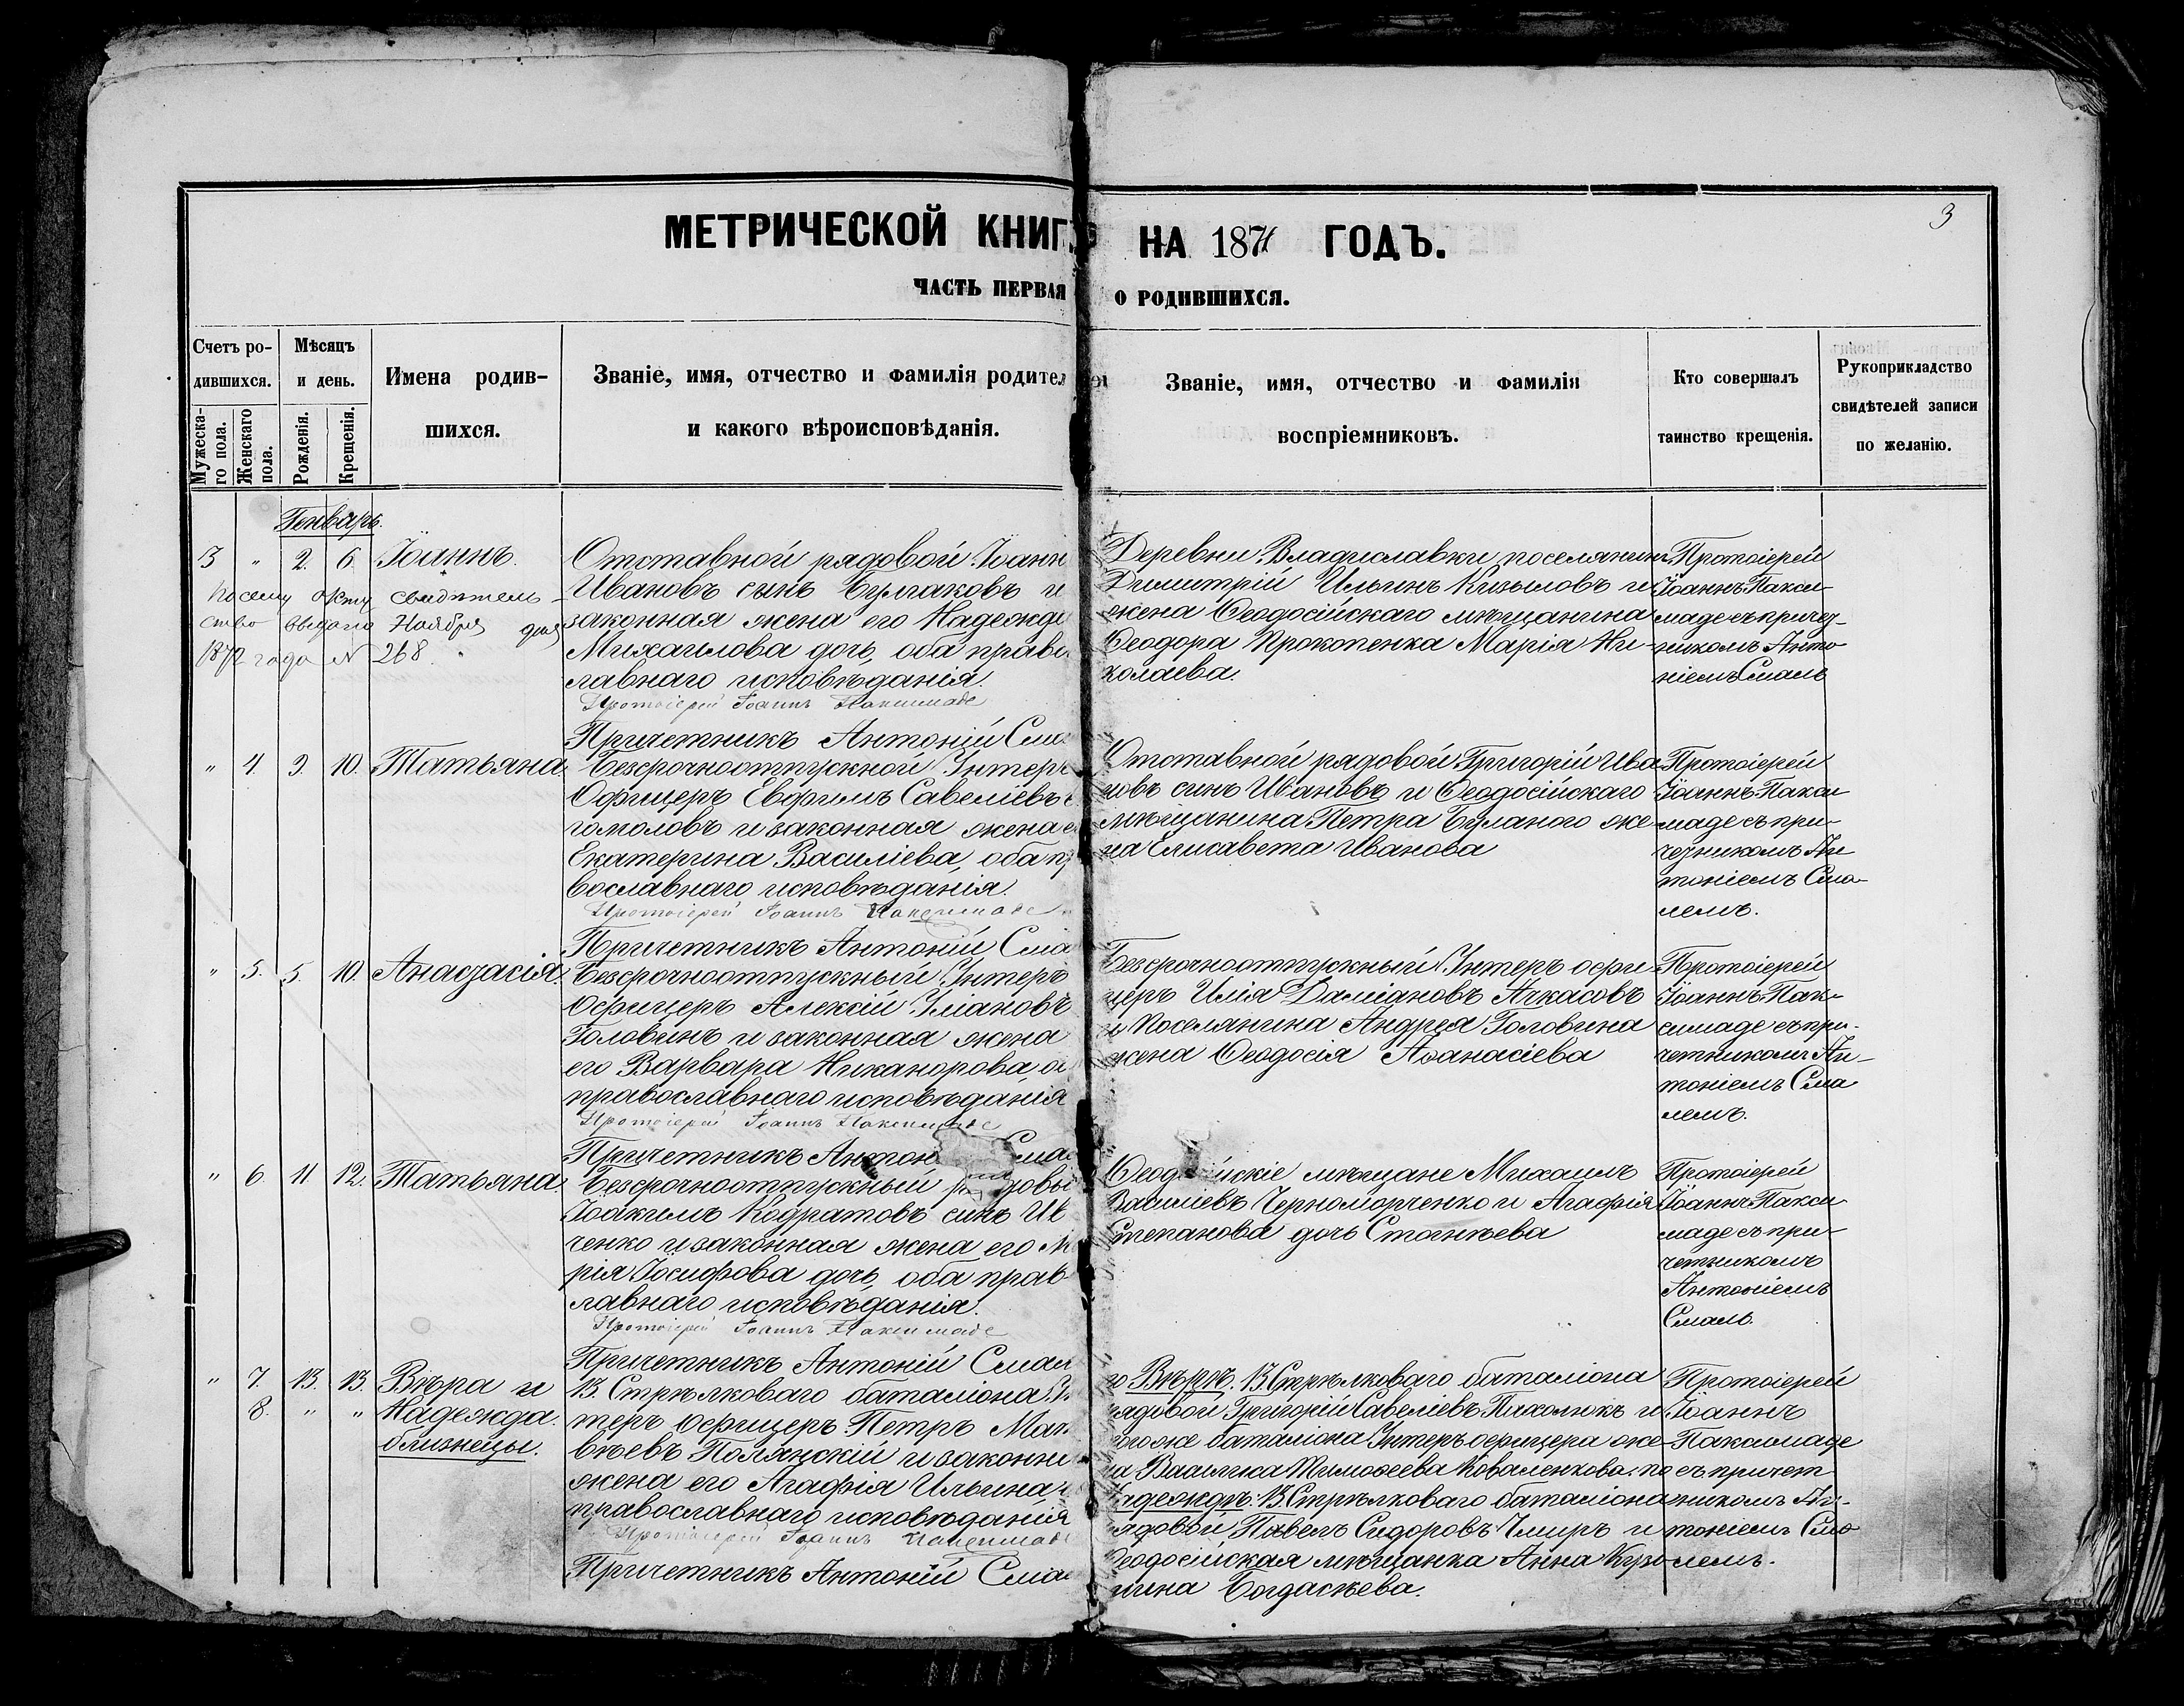 МЕТРИЧЕСКОЙ КНИГЪ НА 1871 ГОДЪ.
3
ЧАСТЬ ПЕРВАЯ О РОДИВШИХСЯ.
Счетъ ро-
дившихся.
Мужеска-
го пола.
Женскаго
пола.
Мѣсяцъ
и день.
Рожденія.
Крещенія.
Имена родив-
шихся.
Званіе, имя, отчество и фамилія родител
и какого вѣроисповѣданія.
Званіе, имя, отчество и фамилія
воспріемниковъ.
Кто совершалъ
таинство крещенія.
Рукоприкладство
свидѣтелей записи
по желанію.
Генварь.
3 " 2. 6. Іоаннъ.
По сему акту свидѣтель-
ство выдано Ноября дня
1872 года № 268.
Отставной рядовой Іоанн
Ивановъ сынъ Булгаковъ и
законная жена его Надежда
Михаилова дочь, оба право
лавнаго исповѣданія.
Протоіерей Іоаннъ Паксимаде
Причетникъ Антоній Сма
Деревни Владиславки поселянинъ
Димитрій Ильинъ Кизыловъ и
жена Ѳеодосійскаго мѣщанина
Ѳеодора Прокопенка Марія Ни-
колаева.
Протоіерей
Іоаннъ Пакси-
маде съ причет-
никомъ Анто-
ніемъ Смаль
" 4. 9. 10. Татьяна
Безсрочноотпускной Унтеръ
Офицеръ Евфимъ Савеліевъ
гомоловъ и законная жена е
Екатерина Василіева, оба пр
вославнаго исповѣданія.
Протоіерей Іоаннъ Паксимаде
Причетникъ Антоній Сма
Отставной рядовой Григорій Ива
новъ синъ Ивановъ и Ѳеодосійскаго
мѣщанина Петра Буланого же-
на Елисавета Иванова
Протоіерей
Іоаннъ Пакси
маде съ при-
чезникомъ Ан
тоніемъ Сма-
лемъ.
" 5. 5. 10. Анастасія.
Безсрочноотпускный Унтеръ
Офицеръ Алексій Уліановъ
Головинъ и законная жена
его Варвара Никанорова, о
православнаго исповѣданія
Протоіерей Іоаннъ Паксимаде
Причетникъ Антон Сма
Безсрочноотпускный Унтеръ офи-
церъ Илія Даміановъ Ачкасовъ
и Поселянина Андрея Головина
жена Ѳеодосія Аѳанасіева
Протоіерей
Іоаннъ Пак-
симаде съ при-
четникомъ Ан-
тоніемъ Сма
лемъ.
" 6. 11. 12. Татьяна.
Безсрочноотпускный рядовы
Іоакимъ Кодратовъ синъ Ив
ченко и законная жена его М
рія Іосифова дочь, оба прав
лавнаго исповѣданія.
Протоіерей Іоаннъ Паксимаде
Причетникъ Антоній Смал
Ѳеодо йскіе мѣщане Михаилъ
Василіевъ Черноморченко и Агафія
Степанова дочь Стогнѣева
Протоіерей
Іоаннъ Пакси
маде съ при-
четникомъ
Антоніемъ
Смаль.
" 7. 13. 13. Вѣра и
8. " " Надежда.
близнецы.
13. Стрѣлковаго баталіона Ун
теръ Офицеръ Петръ Мат
вѣевъ Полянскій и законн
жена его Агафія Ильина,
православнаго исповѣданія
Протоіерей Іоаннъ Паксимаде
Причетникъ Антоній Сма
о Вѣрѣ. 13. Стрѣлковаго баталіона
рядовой Григорій Савеліевъ Пахолюкъ и
тогоже баталіона Унтеръ офицера же-
на Василиса Тимоѳеева Коваленкова. по
Надеждѣ: 13. Стрѣлковаго баталіона
рядовой Павелъ Сидоровъ Чмиръ и
Ѳеодосійская мѣщанка Анна Кузо
мина Богдасѣева.
Протоіерей
Іоаннъ
Паксимаде
съ причет
никомъ Ан-
тоніемъ Сма
лемъ.